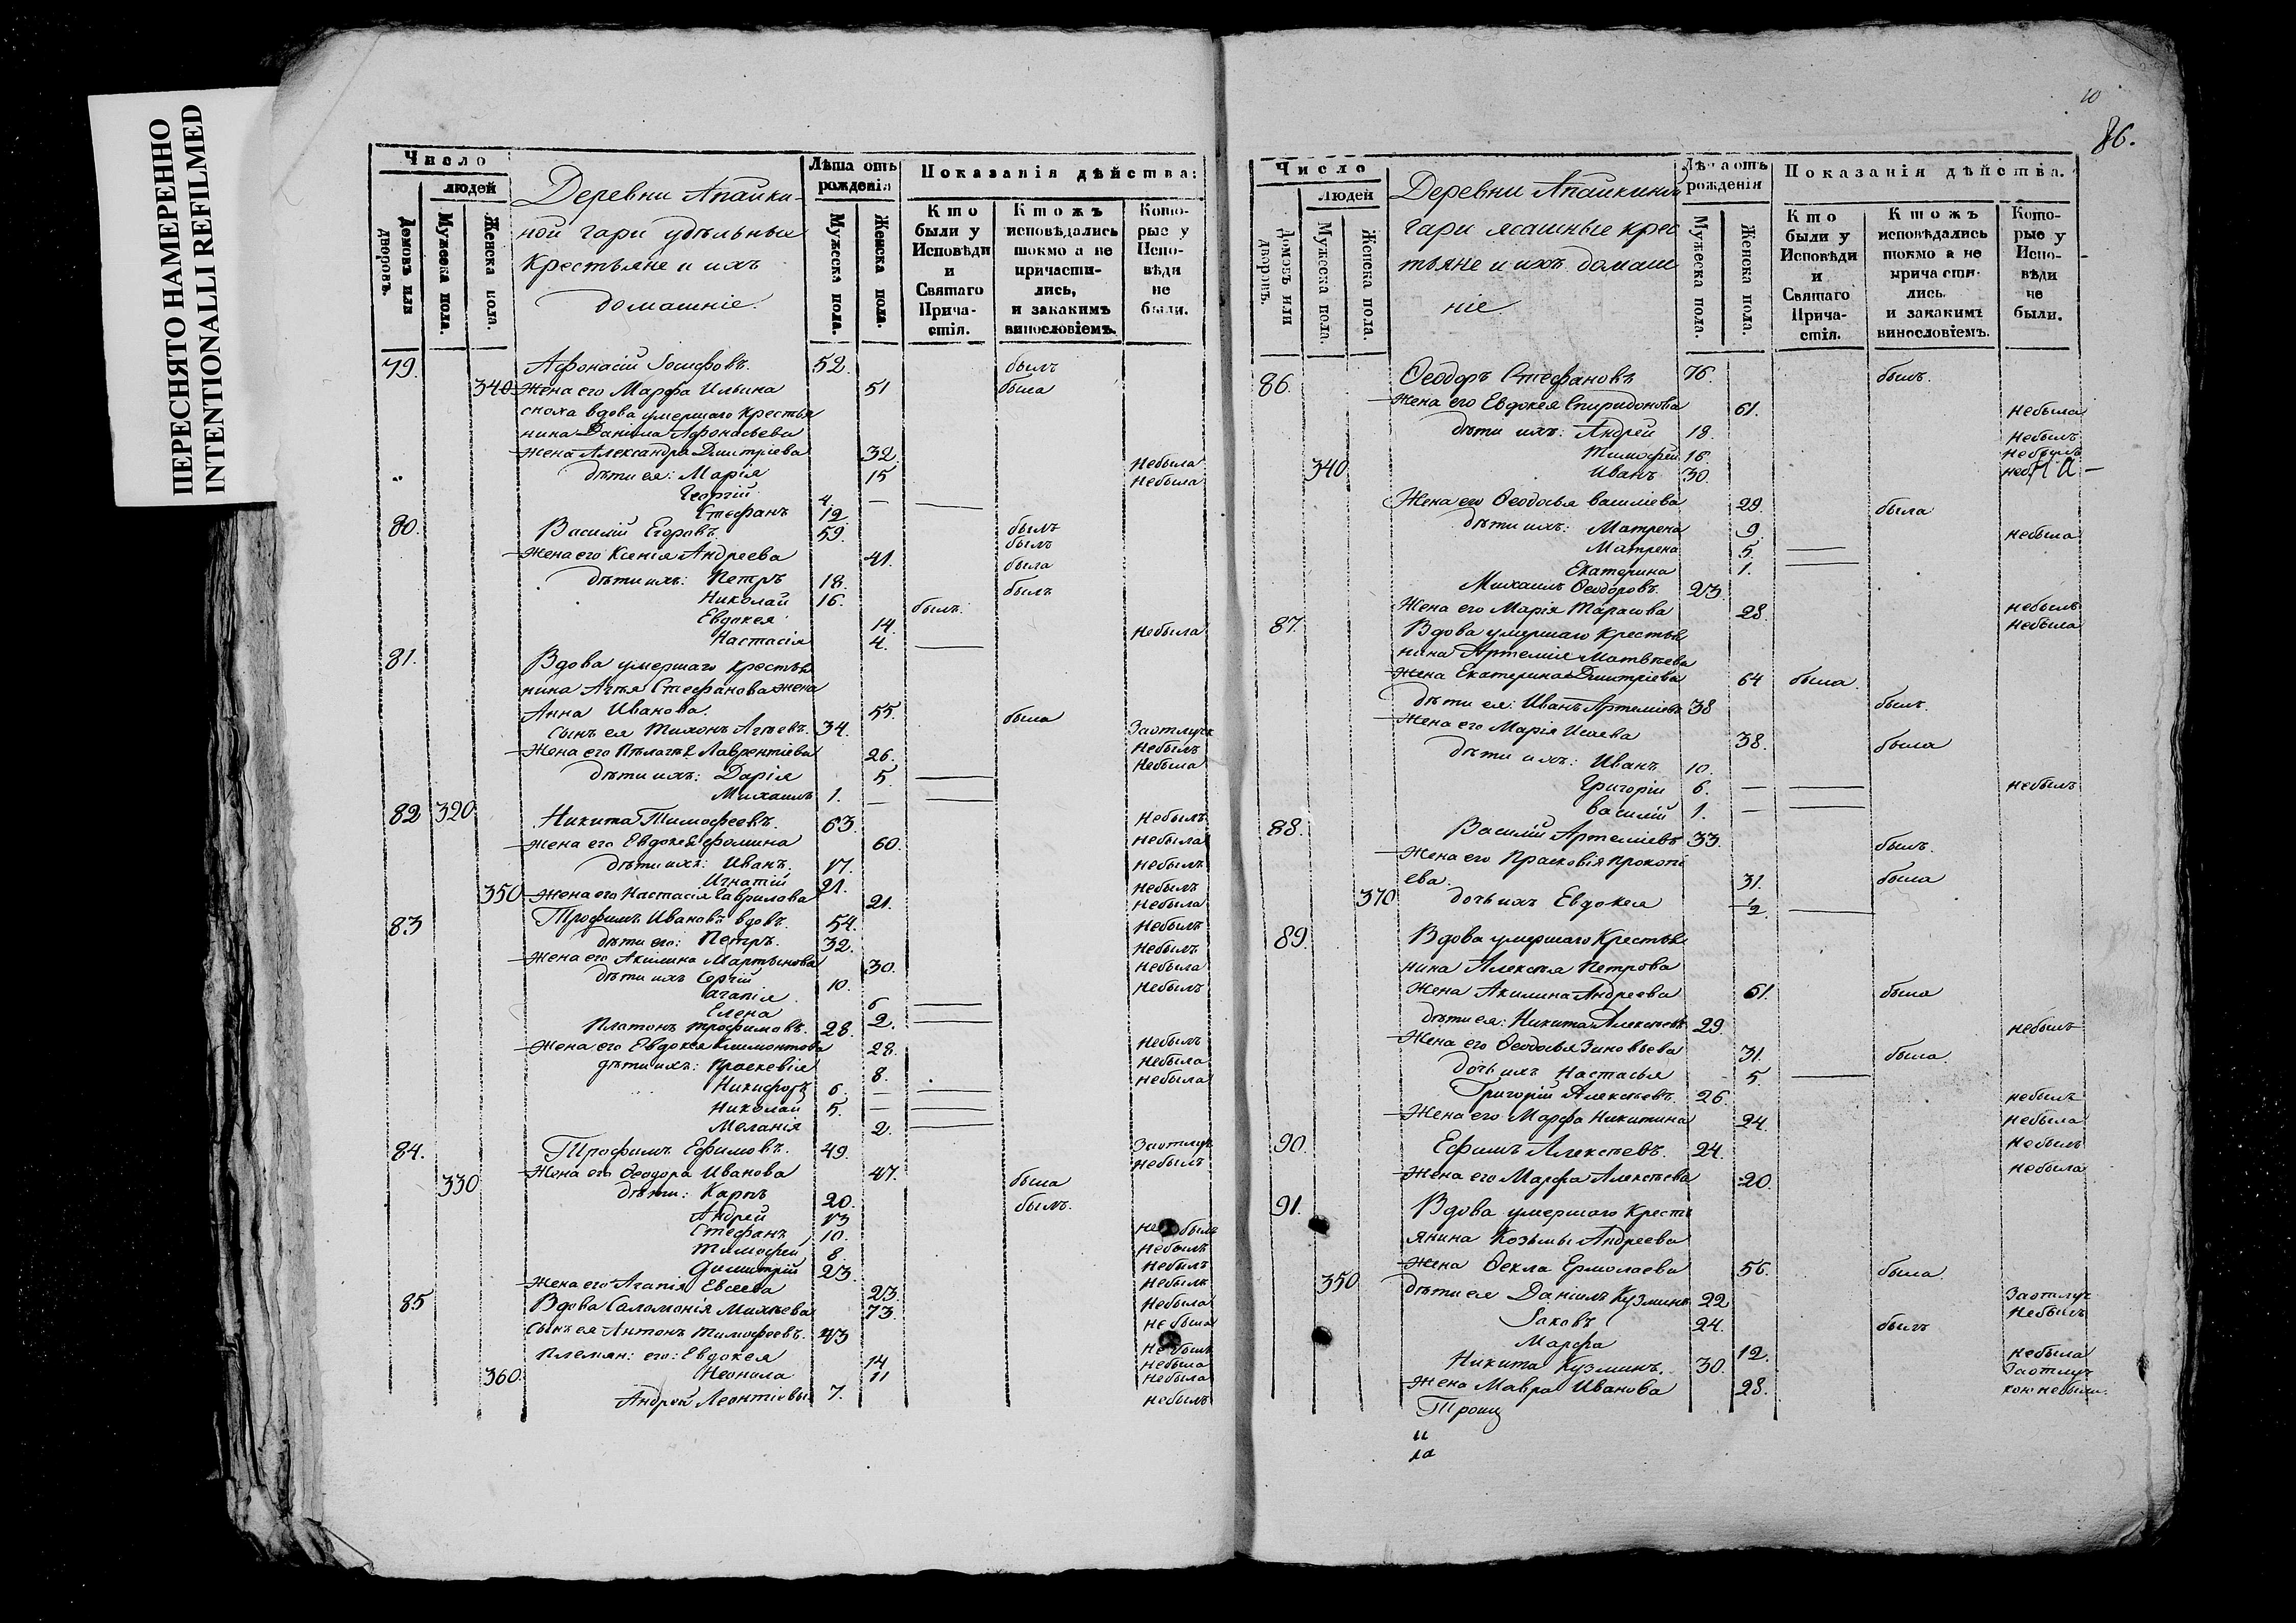 ПЕРЕСНЯТО НАМЕРЕННО
INTENTIONALLI REFILMED
Число
людей
Домовъ или дворовъ.
Мужеска пола.
Женска пола.
Деревни Апайки-
ной гари удѣльныя
Крестьяне и ихъ
домашніе.
Лѣта отъ рожденія
Мужеска пола.
Женска пола.
Показанія дѣйства:
Кто были у Исповѣди и Святаго Прича-стія.
Ктожъ исповѣдались токмо а не причасти-лись, и закакимъ винословіемъ.
Кото-рые у Испо-вѣди не были.
79. Афонасій Іосифовъ. 52. былъ
340 Жена его Марфа Ильина 51 была
сноха вдова умершаго Крестья
нина Данила Афонасьева
Жена Александра Дмитріева 32 Небыла
дѣти ея: Марія 15 Небыла
Георгій 4 —
Стефанъ 12
80. Василій Егоровъ. 59. былъ
былъ
Жена его Ксенія Андреева 41. была
дѣти ихъ: Петръ 18. былъ
Николай 16. былъ.
Евдокея 14. Небыла
Настасія 4. —
81. Вдова умершаго крестья
нина Агѣя Стефанова жена
Анна Иванова. 55. была
сынъ ея Тихонъ Агѣевъ. 34. Заотлуч Небылъ
Жена его Пѣлагѣя Лаврентіева 26. Небыла
дѣти ихъ: Дарія 5. —
Михаилъ 1. — —
82 320 Никита Тимофеевъ. 63. Небылъ
Жена его Евдокея Фомина 60. Небыла
дѣти ихъ: Иванъ 17. Небылъ
Игнатій 21. Небылъ
350 Жена его Настасія Гаврилова 21. Небыла
83 Трофимъ Ивановъ вдовъ. 54. Небылъ
дѣти его: Петръ. 32. Небылъ
Жена его Акилина Мартынова 30. Небыла
дѣти ихъ Сергій 10. Небылъ
Агапія 6 —
Елена 2. —
Платонъ Трофимовъ. 28. Небылъ
Жена его Евдокея Климонтова 28. Небыла
дѣти ихъ: Праскевія 8. Небыла
Никифоръ 6. — —
Николай 5. — —
Меланія 2. —
84. Трофимъ Ефимовъ. 49. Заотлуч небылъ
Жена его Ѳеодора Иванова 47. была
330 дѣти: Карпъ 20. былъ.
Андрей 13 небылъ
Стефанъ 10. Небылъ
Тимофей 8. Небылъ
Димитрій 23. Небылъ
Жена его Агапія Евсеева 23. Небыла
85 Вдова Саломонія Михѣева 73. Небыла
сынъ ея Антонъ Тимофеевъ. 43 Небылъ
Племян: его: Евдокея 14 небыла
360 Неонила 11 Небыла
Андрей Леонтіевы 7. небылъ
10
86.
Число
Людей
Домовъ или дворовъ.
Мужеска пола.
Женска пола.
Деревни Апайкиной
Гари ясашные крес
тьяне и ихъ домаш
ніе.
Лѣта отъ рожденія
Мужеска пола.
Женска пола.
Показанія дѣйства.
Кто были у Исповѣди и Святаго Прича-стія.
Ктожъ исповѣдались токмо а не причасти-лись. и закакимъ винословіемъ.
Кото-рые у Испо-вѣди не были.
86. Ѳеодоръ Стефановъ 76. былъ.
Жена его Евдокея Спиридонова 61. небыла
дѣти ихъ: Андрей 18. Небылъ
Тимофей 16 Небылъ
340 Иванъ 30.
Жена его Ѳеодосья Василіева 29. была
дѣти ихъ: Матрена 9. небыла
Матрена 5. —
Екатерина 1. —
Михаилъ Ѳеодоровъ. 23. небылъ
Жена его Марія Тарасова 28. Небыла
87. Вдова умершаго Крестья
нина Артемія Матвѣева
Жена Екатерина Дмитріева 64 была.
Дѣти ея: Иванъ Артеміевъ 38 былъ.
Жена его Марія Исаева 38. была
дѣти ихъ: Иванъ 10. небылъ
Григорій 6. — —
Василій 1. — —
88. Василій Артеміевъ 33. былъ.
Жена его Прасковія Прокопі
ева. 31. была
370 дочь ихъ Евдокея ½. —
89. Вдова умершаго Крестья
нина Алексѣя Петрова
Жена Акилина Андреева 61. была
дѣти ея: Никита Алексѣевъ 29. небылъ
Жена его Ѳеодосья Зиновьева 31. была.
дочь ихъ Настасья 5. —
Григорій Алексѣевъ. 26. небылъ
Жена его Марфа Никитина 24. небыла
90. Ефимъ Алексѣевъ. 24. Небылъ
Жена его Марфа Алексѣева 20. небыла
91. Вдова умершаго Кресть
янина Козьмы Андреева
Жена Ѳекла Ермолаева 56. была.
350 дѣти ея Даніилъ Кузминъ 22 Заотлуч Небылъ
Іаковъ 24. былъ
Марфа 12. небыла
Никита Кузминъ. 30. Заотлуч
Жена Мавра Иванова 28. кою небыли.
Троиц